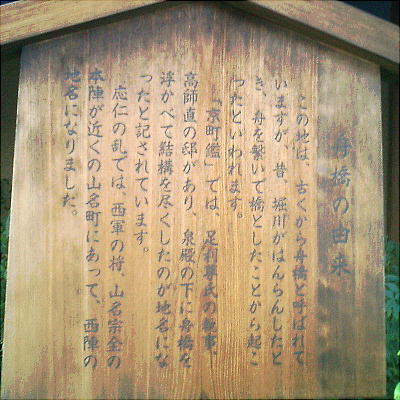 舟橋の由来
この地は、古くから舟橋と呼ばれて
いますが、昔、堀川がはんらんしたと
き、舟を繋いで橋としたことから起こ
ったといわれます。
「京町鑑」では、足利尊氏の執事、
高師直の邸があり、泉殿の下に舟橋を
浮かべて結構を尽くしたのが地名にな
ったと記されています。
応仁の乱では、西軍の将、山名宗全の
本陣が近くの山名町にあって、西陣の
地名になりました。